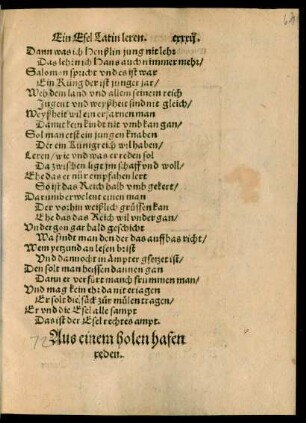 Ein Esel Latin leren. cxxxij.
Dann was ich Henßlin jung nit lehr
Das lehrnch Hans auch nimmer mehr/
Salomon spricht vnd es ist war
Ein Küng der ist junger jar/
Weh dem land vnd allem seinem reich
Jugent vnd weyßheit sind nit gleich/
Weyßheit wil ein erfarnen man
Damit kein kindt nit vmb kan gan/
Sol man erst ein jungen knaben
Der ein Künigreich wil haben/
Leren/ wie vnd was er reden sol
Da zwischen ligt im schaff vnd woll/
Ehe das er nür empfahen lert
So ist das Reich halb vmb gekert/
Darumb erwelent einen man
Der vorhin weißlich grüssen kan
Ehe das das Reich wil vndergan/
Vnder gon gar bald geschicht
Wa findt man den der das auffhas richt/
Wem yetzund an lesen brist
Vnd dannocht in ämpter gsetzet ist/
Den solt man heissen dannen gan
Dann er verfürt manch frummen man/
Vnd mag kein ehr da nit eriagen
Er solt die säck zur mülen tragen/
Er vnd die Esel alle sampt
Das ist der Esel rechtes ampt.
72 Aus einem holen hafen
reden.